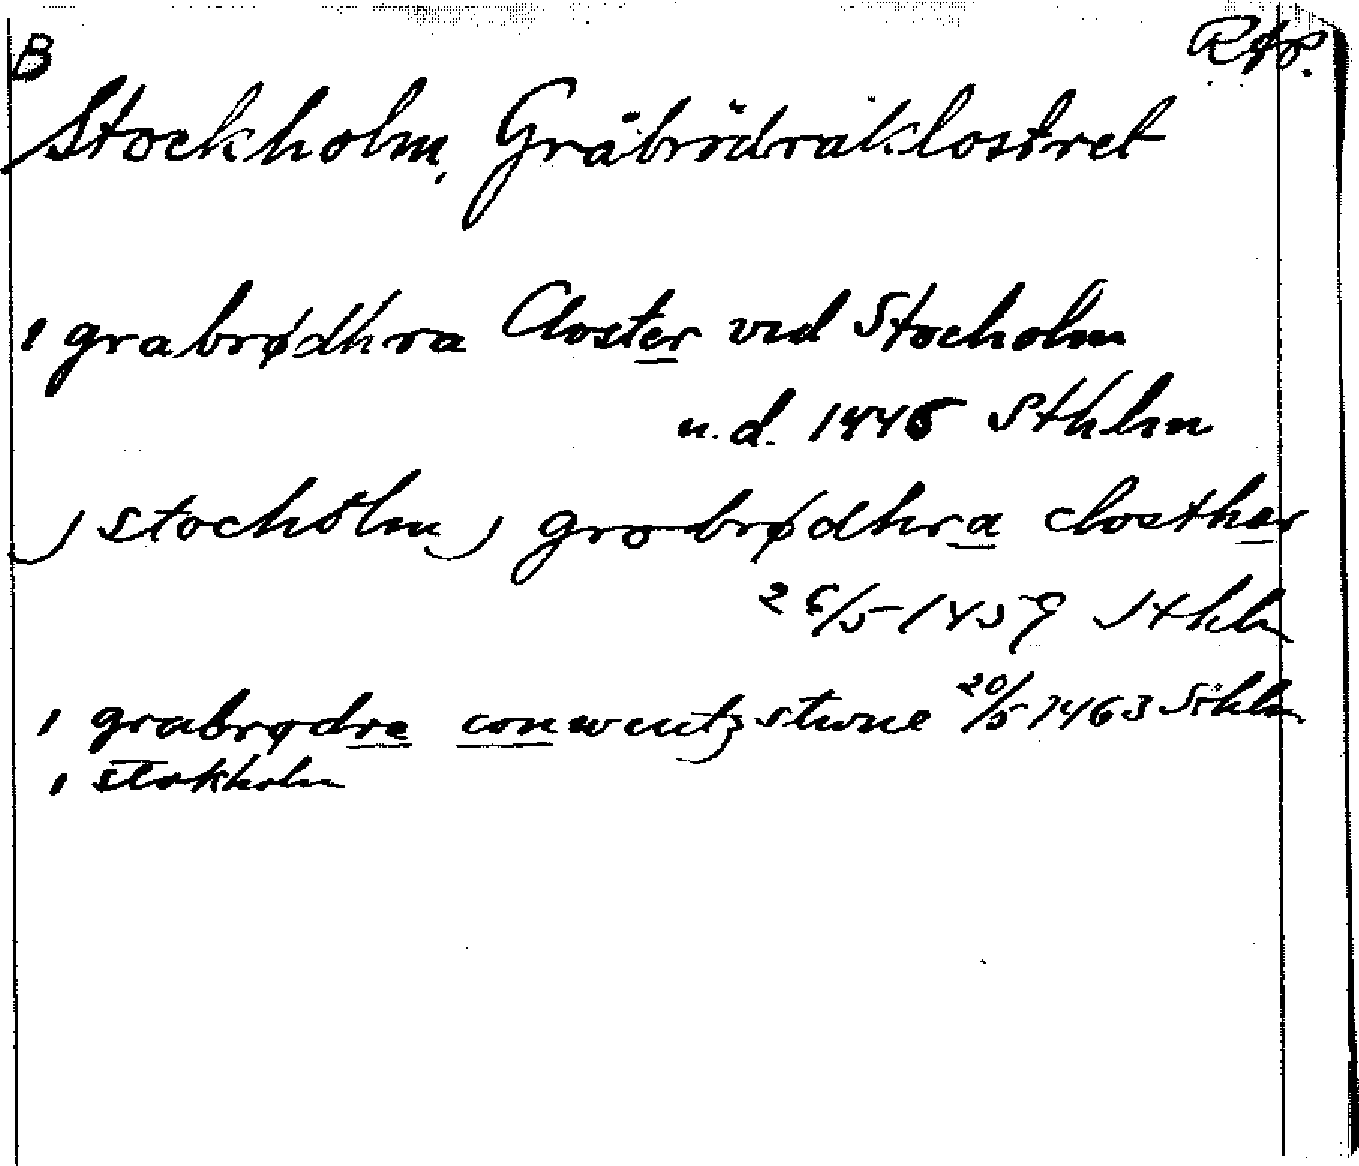 B
Rep.
Stockholm, Gråbrödraklostret
ı grabrødhra Closter vıd Stocholm
u.d. 1446 Sthlm
j stocholm j grobrødhra closther
26/5 1459 Sthlm
ı grabrødre conwentzstwne 20/5 1463 Sthlm
ı stokholm